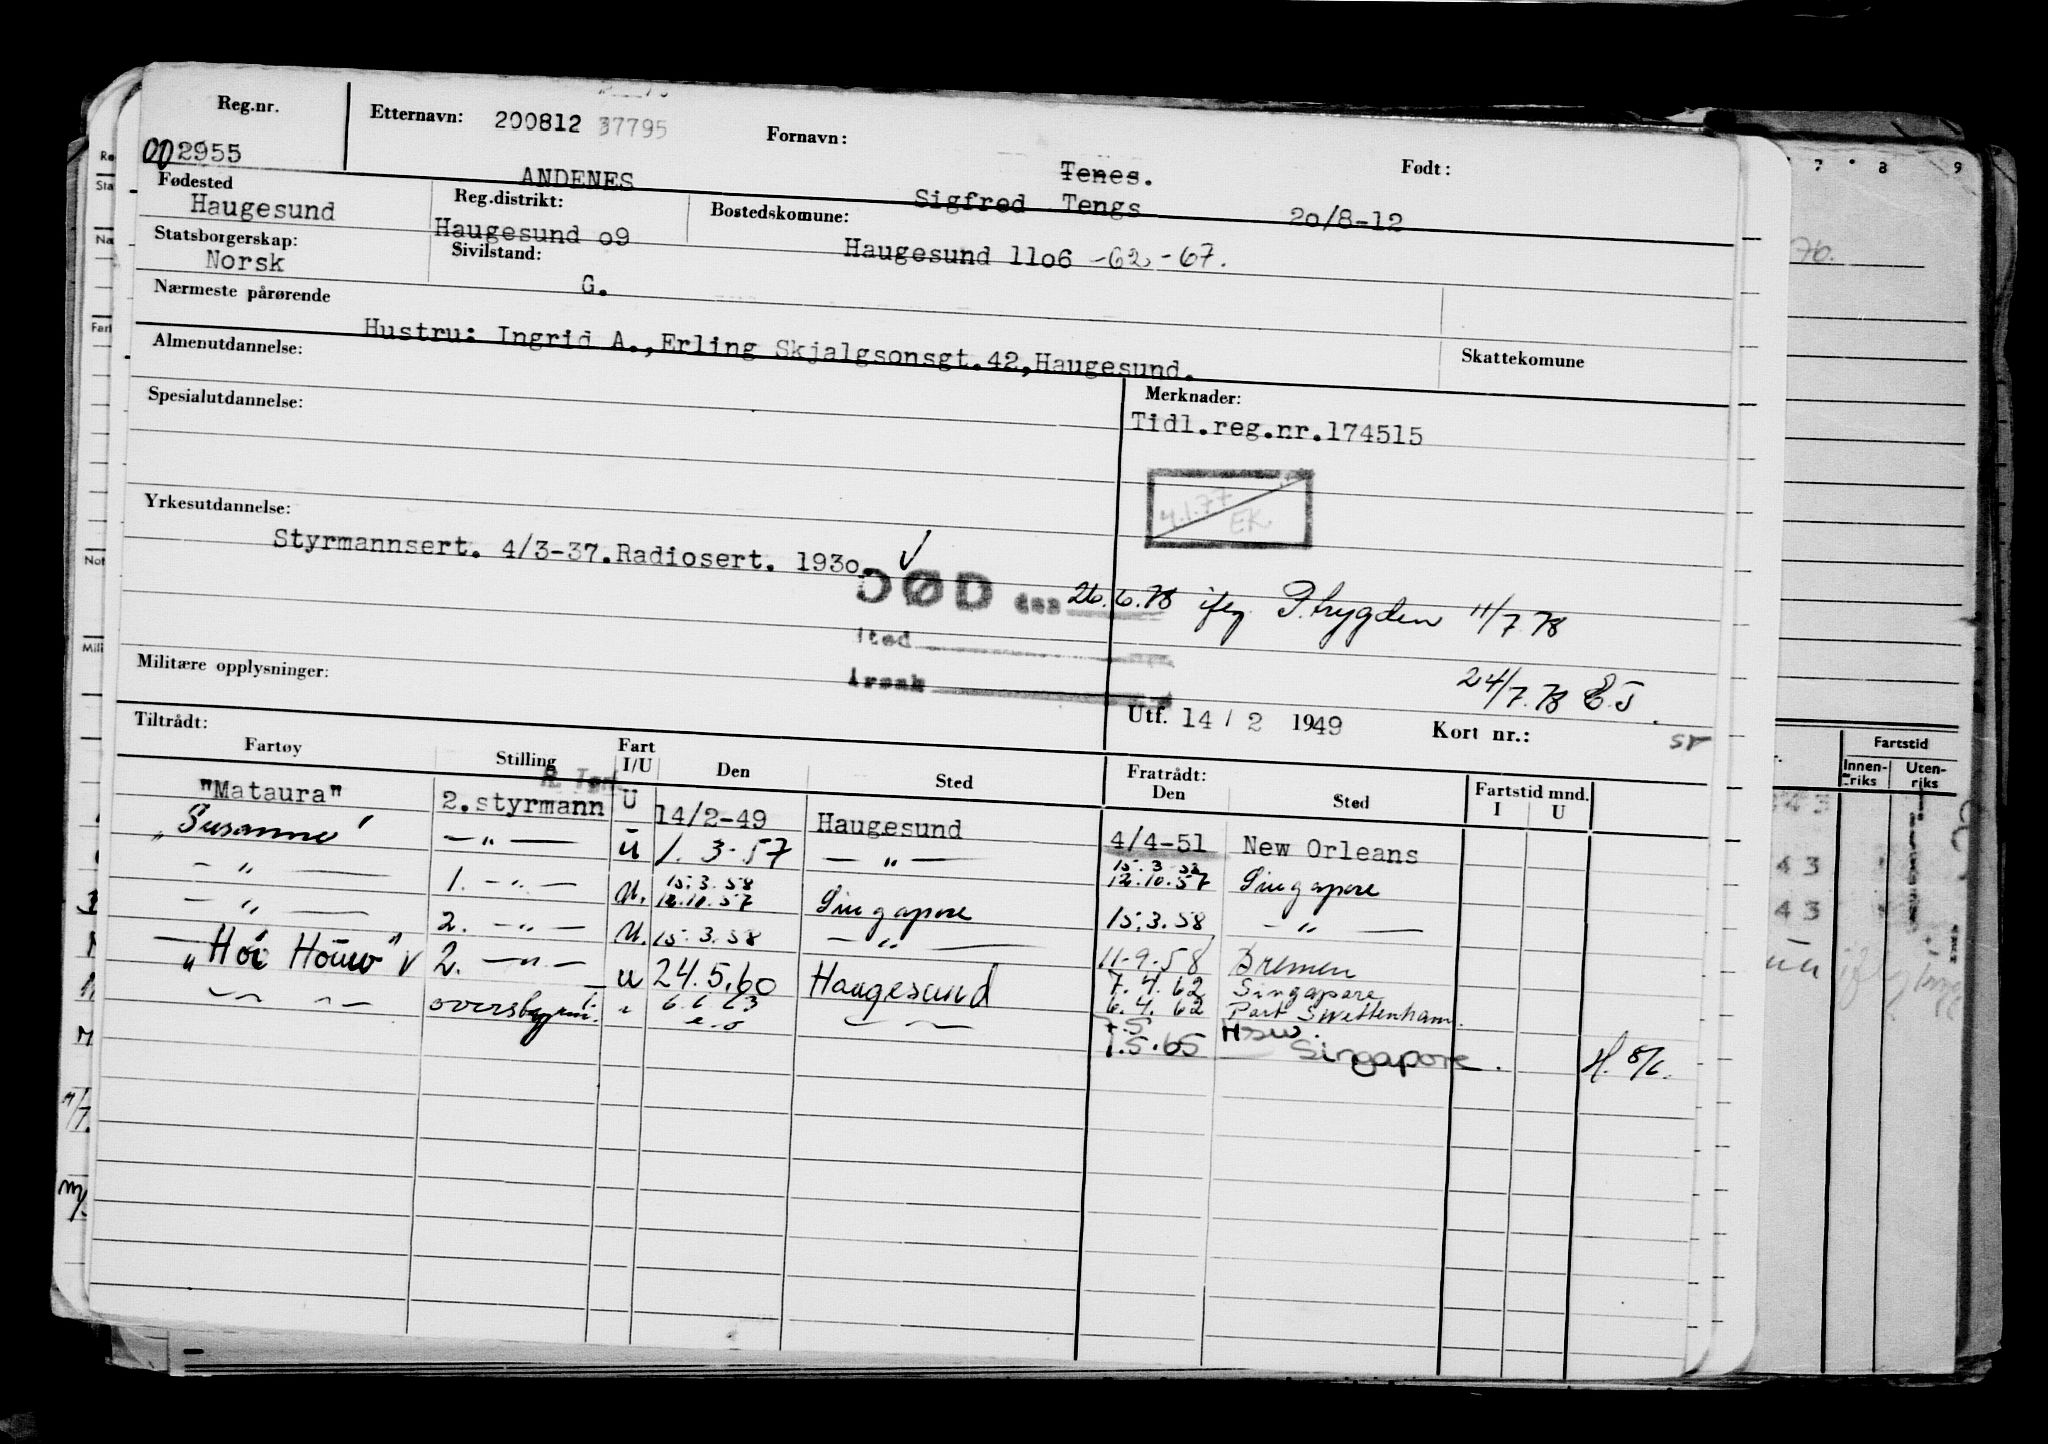 Reg.nr. Etternavn: 200812 37795 Fornavn: Født:
002955 ANDENES Sigfred Tenes. Tengs 2o/8-12
Fødested Haugesund Reg.distrikt: Haugesund o9 Bostedskomune: Haugesund 11o6 -62-67.
Statsborgerskap: Norsk Sivilstand: G.
Nærmeste pårørende
Hustru: Ingrid A.,Erling Skjalgsonsgt.42,Haugesund.
Almenutdannelse: Skattekomune
Spesialutdannelse: Merknader:
Tidl.reg.nr.174515
4.1.77 EK.
Yrkesutdannelse:
Styrmannsert. 4/3-37.Radiosert. 193o. √
DØD den 26.6.78 iflg P.trygden 11/7 78
sted
årsak
24/7.78 E.J.
Militære opplysninger:
Utf. 14 / 2 1949 Kort nr.:
Tiltrådt: Fratrådt: Fartstid mnd.
Fartøy Stilling Fart I/U Den Sted Den Sted I U
"Mataura" 2.styrmann U 14/2-49 Haugesund 4/4-51 New Orleans
"Susanne" — " — U 1.3-57 — " — 12.10.57 Singapore
— " — 1. — " — U. 15.3.58 12.10.57 Singapore 15.3.58 — " —
— " — 2. — " — U. 15.3.58 — " — 11-9.58 Bremen
2. — " — U 24.5.60 Haugesund 7.4.62 Singapore
6.4.62 Port Swettenham.
1.5.65 Singapore.
7 8 9
Fartstid
Innenriks Utenriks